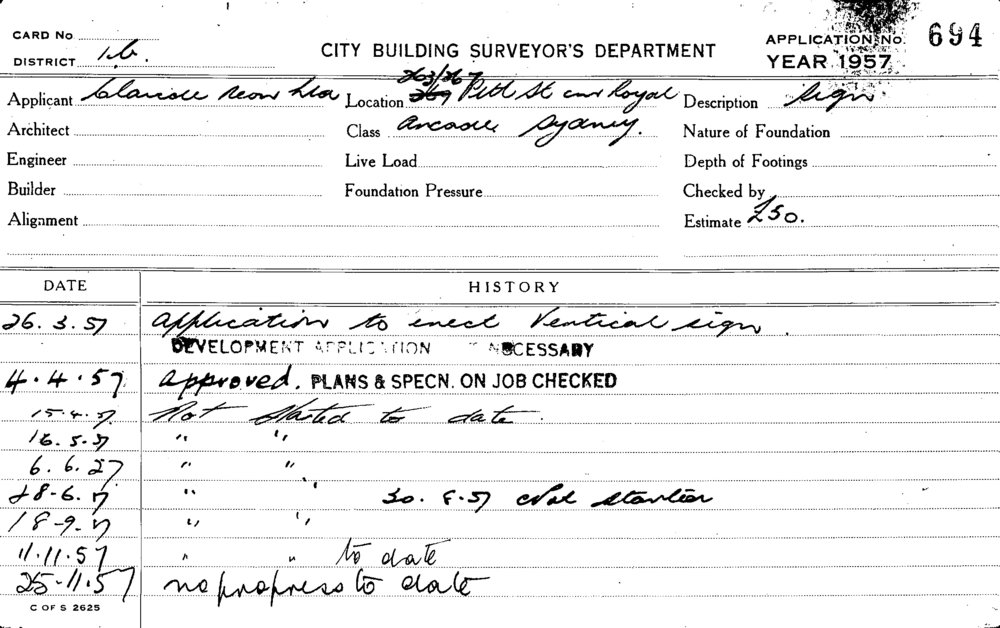 CARD No
DISTRICT 1b.
CITY BUILDING SURVEYOR'S DEPARTMENT
APPLICATION No. 694
YEAR 1957
Applicant Claude Neon Ltd
Location 263/267 Pitt St cnr Royal
Description Sign
Architect
Class Arcade Sydney.
Nature of Foundation
Engineer
Live Load
Depth of Footings
Builder
Foundation Pressure
Checked by
Alignment
Estimate £50.
DATE HISTORY
26. 3. 57 Application to erect Vertical sign.
DEVELOPMENT APPLICATION NECESSARY
4. 4. 57 Approved. PLANS & SPECN. ON JOB CHECKED
15. 4. 57 Not Started to date.
16. 5. 57 " "
6. 6. 57 " "
28-6. 57 " " 30. 8. 57 Not started
18-9. 57 " "
11.11.57 " " to date
25-11.57 no progress to date
C OF S 2625